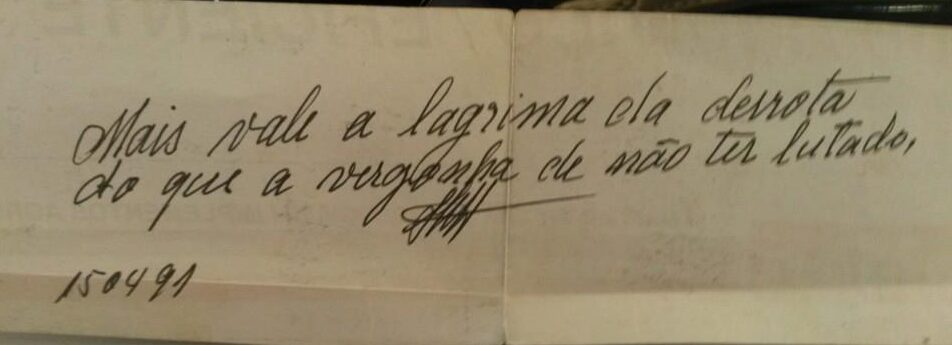 Mais vale a lagrima da derrota
do que a vergonha de não ter lutado,
150491